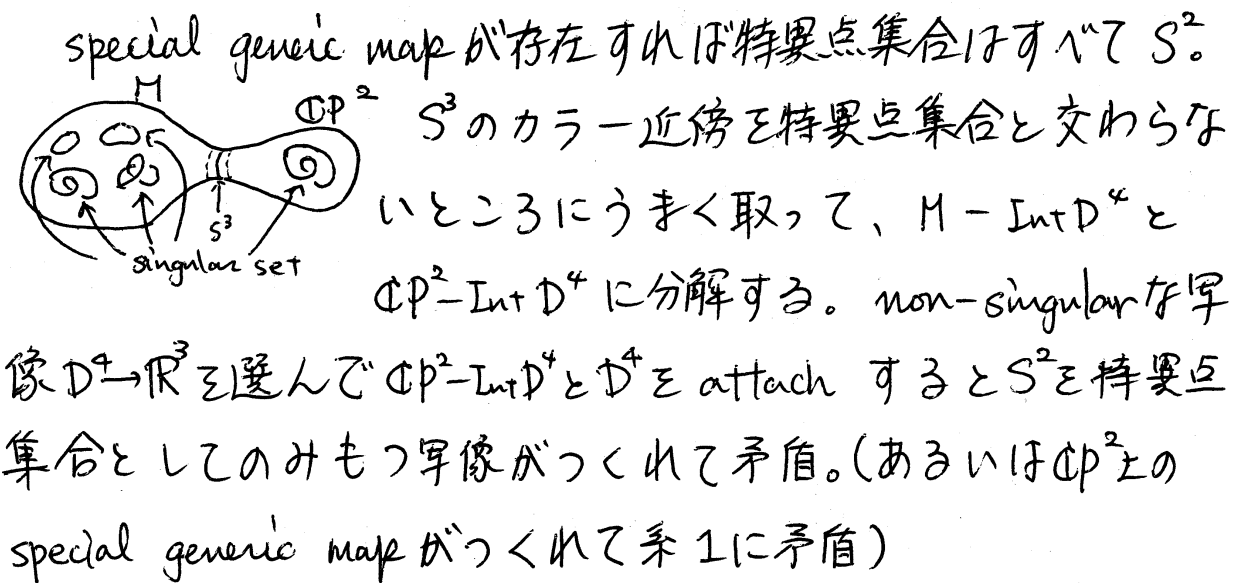 special geneic mapが存在すれば特異点集合はすべてS²。
M
ℂP²
S³のカラー近傍を特異点集合と交わらな
いところにうまく取って、M − IntD⁴と
S³
singular set
ℂP²−IntD⁴に分解する。non-singularな写
像D⁴→ℝ³を選んでℂP²−IntD⁴とD⁴をattachするとS²を特異点
集合としてのみもつ写像がつくれて矛盾。(あるいはℂP²上の
special generic mapがつくれて系1に矛盾)